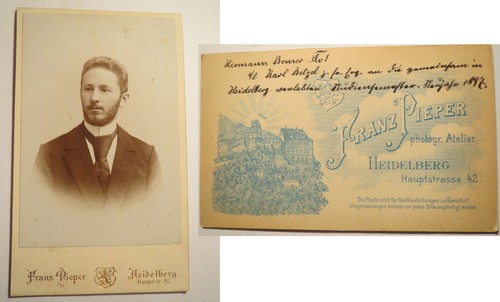 Franz Pieper
Heidelberg
Hauptstr. 42.
Hermann
s/l Karl Betzel z. fr. Erg. an die gemeinsam in
Heidelberg verlebten Studiensemester. Neujahr 1897.
FRANZ PIEPER
photogr. Atelier
HEIDELBERG
Hauptstrasse 42.
Die Platte wird für Nachbestellungen aufbewahrt
Vergrösserungen können von jedem Bilde angefertigt werden.